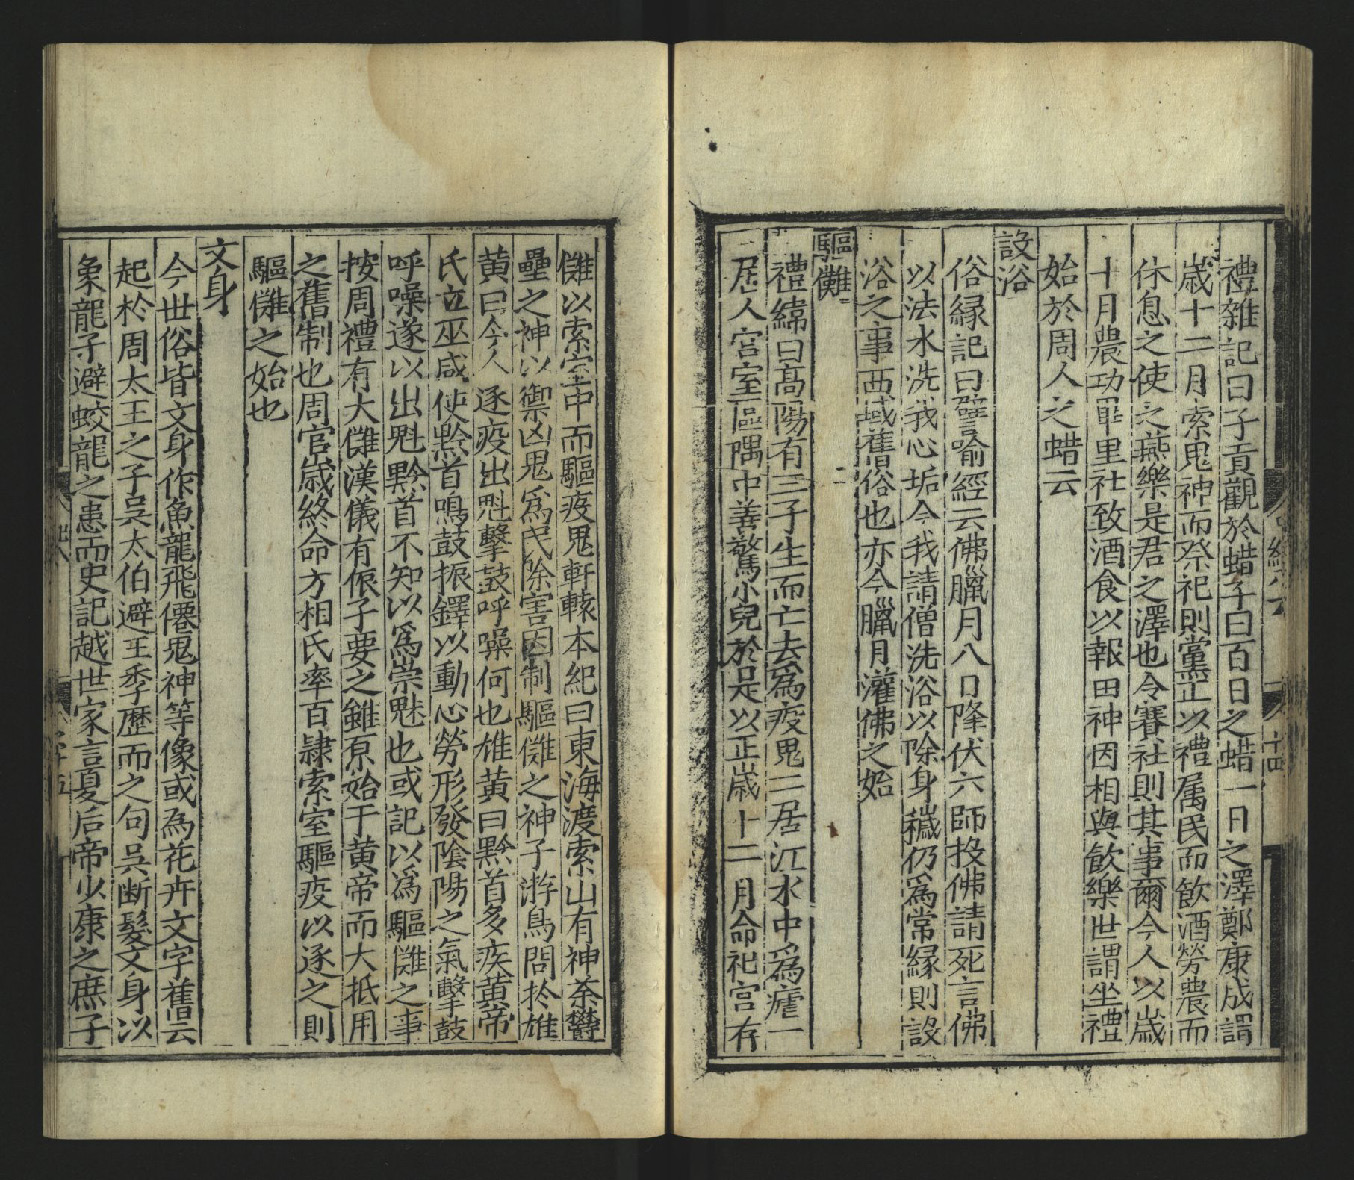 禮雜記曰子貢觀於蜡子曰百日之蜡一日之澤鄭康成謂
歲十二月索鬼神而祭祀則黨正以禮属民而飲酒勞農而
休息之使之燕樂是君之澤也令賽社則其事爾今人以歲
十月農功畢里社致酒食以報田神因相與飲樂世謂坐禮
始於周人之蜡云
設浴
俗縁記曰譬喻經云佛臘月八日降伏六師投佛請死言佛
以法水洗我心垢今我請僧洗浴以除身穢仍爲常縁則設
浴之事西域舊俗也亦今臘月灌佛之始
驅儺
禮緯曰高陽有三子生而亡去為疫鬼二居江水中爲瘧一
居人宮室區隅中善驚小兒於是以正歲十二月命祀官存
儺以索室中而驅疫鬼軒轅本紀曰東海渡索山有神荼鬱
壘之神以禦凶鬼爲民除害因制驅儺之神子游鳥問於雄
黄曰今人逐疫出魁擊鼓呼噪何也雄黄曰黔首多疾黄帝
氏立巫咸使黔首鳴鼓振鐸以動心勞形發陰陽之氣擊鼓
呼噪遂以出魁黔首不知以爲祟魅也或記以爲驅儺之事
按周禮有大儺漢儀有侲子要之雖原始于黄帝而大抵用
之舊制也周官歳終命方相氏率百隷索室驅疫以逐之則
驅儺之始也
文身
今世俗皆文身作魚龍飛僊鬼神等像或為花卉文字舊云
起於周太王之子吳太伯避王季歷而之句吳断髮文身以
象龍子避蛟龍之患而史記越世家言夏后帝少康之庶子